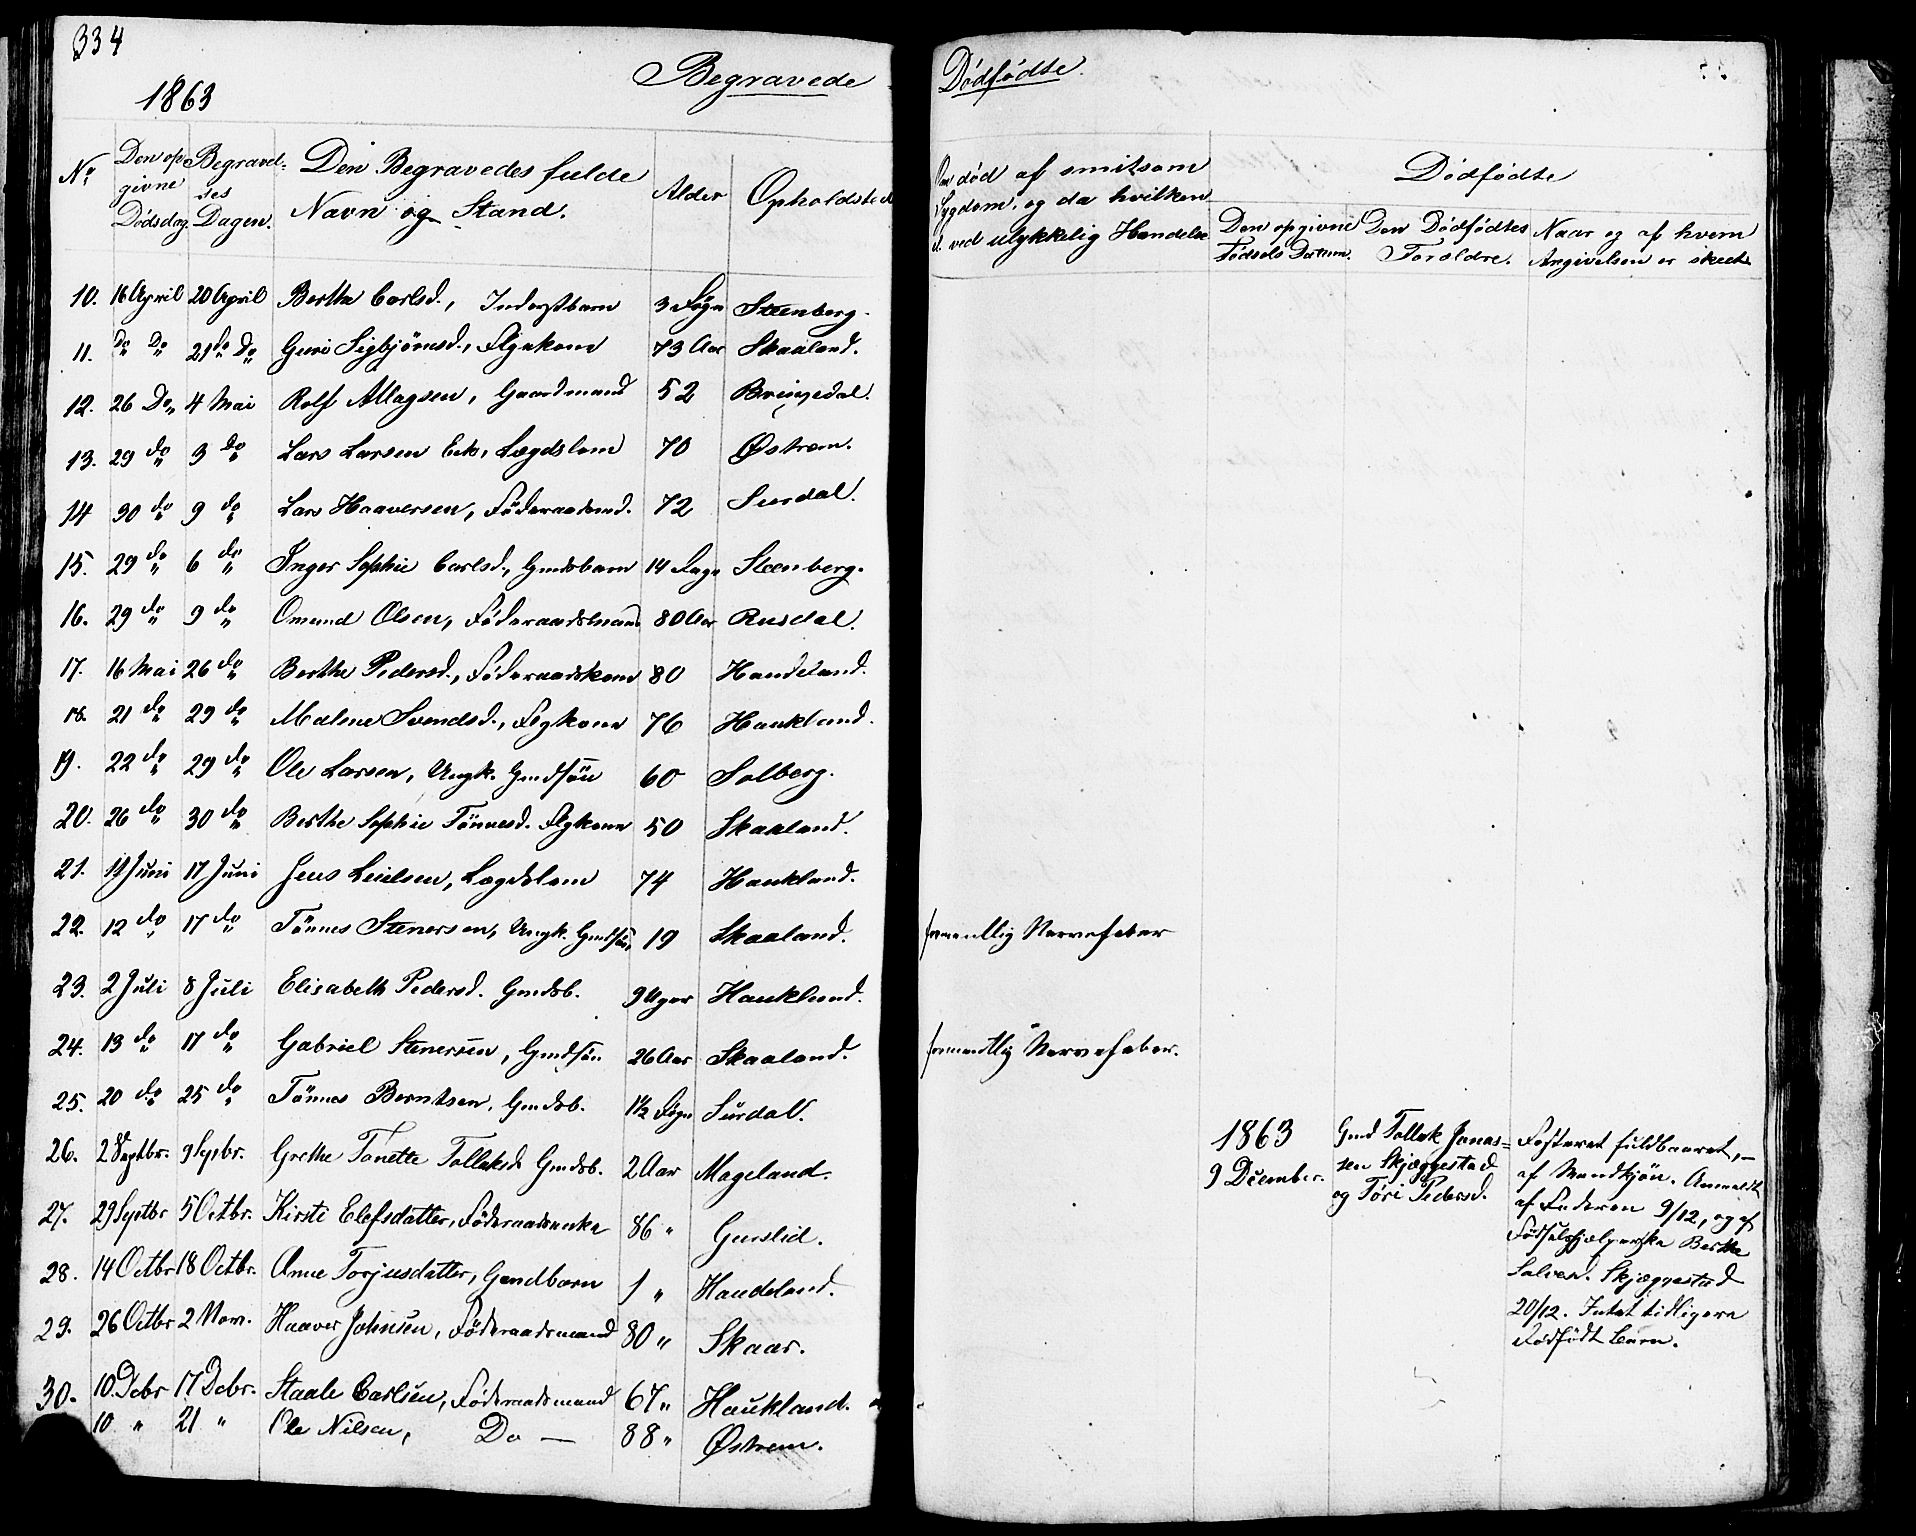 334
1863
Begravede
No
Den op-
givne
Dødsdag.
Begravel-
ses
Dagen.
Den Begravedes fulde
Navn og Stand.
Alder
Opholdsted
10. 16 April 20 April Berthe Carlsd., Inderstbarn 3 Døgn Steenberg.
11. Do Do 21de Do Guri Sigbjørnsd., Flgkone 73 Aar Skaaland.
12. 26 Do 4 Mai Rolf Atlagsen, Gaardmand 52 Bringedal.
13. 29 do 3 do Lars Larsen Eek, Lægdslem 70 Østrem.
14 30 do 9 do Lars Haaversen, Føderaadsmd. 72 Surdal.
15. 29 do 6 do Inger Sophie Carlsd., Gmdsbarn 14 Dage Steenberg.
16. 29 do 9 do Omund Olsen, Føderaadsmand 80 Aar Rusdal.
17. 16 Mai 26 do Berthe Pedersd., Føderaadskone 80 Handeland.
18. 21 do 29 do Malene Svendsd., Flgkone 76 Haukland.
19. 22 do 29 do Ole Larsen, Ungk. Gmdsøn 60 Solberg.
20. 26 do 30 do Berthe Sophie Tønnesd. Flgkone 50 Skaaland.
21. 11 Juni 17 Juni Jens Leielsen, Lægdslem 74 Haukland.
22. 12 do 17 do Tønnes Stenersen, Ungk. Gmdsøn, 19 Skaaland.
23. 2 Juli 8 Juli Elisabeth Pedersd. Gmdsb. 9 Uger Haukland.
24. 13 do 17 do Gabriel Stenersen, Gmdsøn 26 Aar Skaaland.
25. 20 do 25 do Tønnes Berntsen, Gmdsb. 1½ Døgn Surdal.
26. 2 Septbr. 9 Septbr. Grethe Tonette Tollaksd. Gmdsb. 2 Aar Mageland.
27. 29 Septbr 5 Octbr. Kirsti Elefsdatter, Føderaadsenke 86 " Gurslid.
28. 14 Octbr 18 Octbr. Anne Torjusdatter, Gmdbarn 1 " Handeland.
29. 26 Octbr 2 Nov. Haaver Johnsen, Føderaadsmand 80 " Skaar.
30. 10. Debr 17 Debr. Staale Carlsen, Føderaadsmand 67 " Haukland.
10 " 21 " Ole Nilsen, Do — 88 " Østrem.
Dødfødte.
Om død af smitsom
Sygdom, og da hvilken
el. ved ulykkelig Hændelse
Dødfødte
Den opgivne
Fødsels Datum.
Den Dødfødtes
Forældre.
Naar og af hvem
Angivelsen er skeet
formentlig Nervefeber
formentlig Nervefeber.
1863
9 December.
Gmd Tollak Jonas-
sen Skjæggestad
og Tøri Pedersd.
Fosteret fuldbaaret, –
af Mandkjøn. Anmeldt
af Faderen 9/12, og af
Fødselshjælperske Berthe
Salvesd. Skjæggestad
20/12. Intet tidligere
dødfødt Barn.